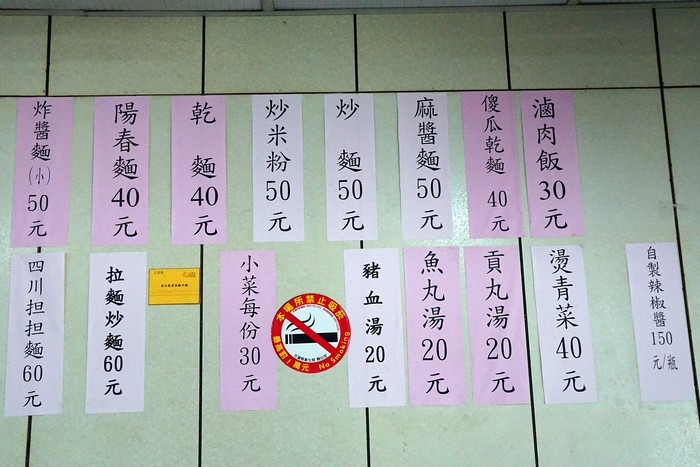 滷肉飯30元
傻瓜乾麵40元
麻醬麵50元
炒麵50元
炒米粉50元
乾麵40元
陽春麵40元
炸醬麵(小)50元
自製辣椒醬150元/瓶
燙青菜40元
貢丸湯20元
魚丸湯20元
豬血湯20元
本場所禁止吸菸
No Smoking
小菜每份30元
拉麵炒麵60元
四川担担麵60元